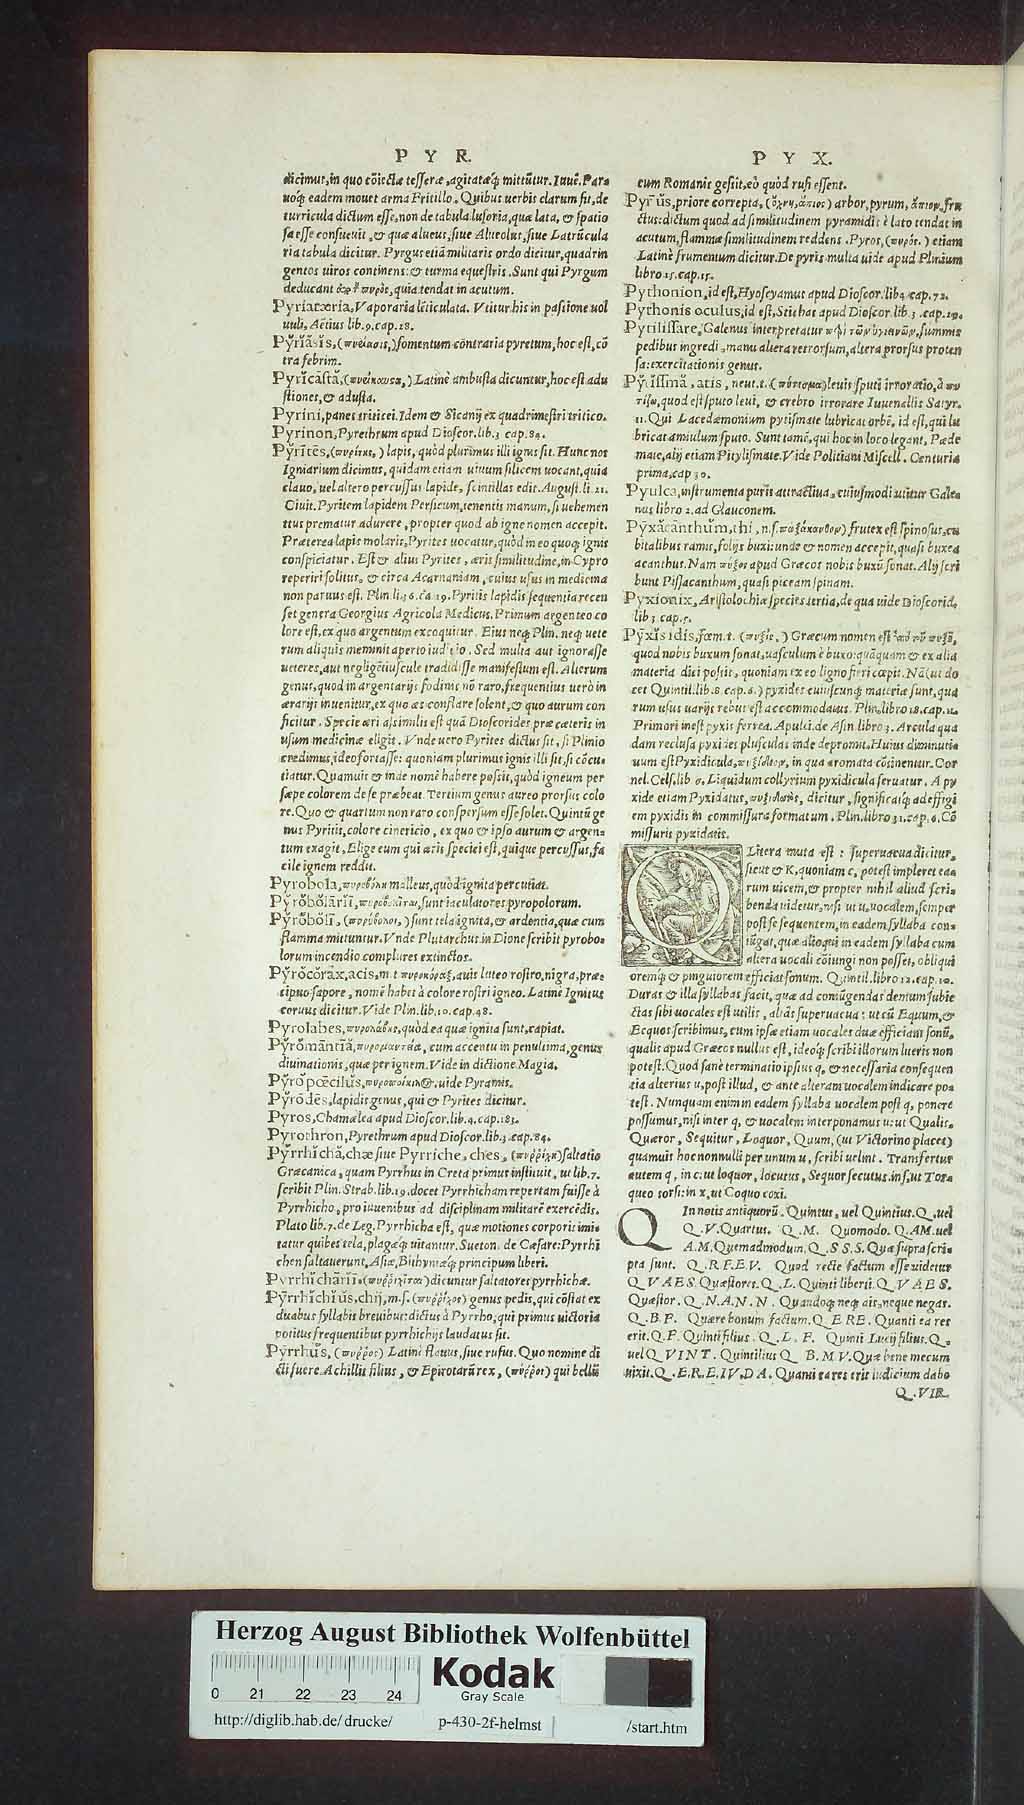 P Y R.
dicimus, in quo cōiectæ tesseræ, agitatæq́; mittūtur. Iuuē. Par=
uoq́; eadem mouet arma Fritillo. Quibus uerbis clarum fit, de
turricula dictum esse, non de tabula lusoria, quæ lata, & spatio
sa esse consueuit, & quæ alueus, siue Alueolus, siue Latrūcula
ria tabula dicitur. Pyrgus etiā militaris ordo dicitur, quadrin
gentos uiros continens: & turma equestris. Sunt qui Pyrgum
deducant πυρὸς, quia tendat in acutum.
Pyriatæria, Vaporaria lēticulata. Vtitur his in passione uol
uuli, Aëtius lib. 9. cap. 28.
Pyrĭăsĭs, fomentum contraria pyretum, hoc est, cō
tra febrim.
Pyrĭcāstă, Latinè ambusta dicuntur, hoc est adu
stiones, & adusta.
Pyrini, panes triticei. Idem & Sicanij ex quadrimestri tritico.
Pyrinon, Pyrethrum apud Dioscor. lib. 3 cap. 84.
Pyrītēs, (πυρίτης,) lapis, quòd plurimus illi ignis sit. Hunc nos
Igniarium dicimus, quidam etiam uiuum silicem uocant, quia
clauo, uel altero percussus lapide, scintillas edit. August. li. 21.
Ciuit. Pyritem lapidem Persicum, tenentis manum, si uehemen
tius prematur adurere, propter quod ab igne nomen accepit.
Præterea lapis molaris, Pyrites uocatur, quòd in eo quoq; ignis
conspiciatur. Est & alius Pyrites, æris similitudine, in Cypro
reperiri solitus, & circa Acarnaniam, cuius usus in medicina
non paruus est. Plin. li. 36. ca. 19. Pyritis lapidis sequentia recen
set genera Georgius Agricola Medicus. Primum argenteo co
lore est, ex quo argentum excoquitur. Eius neq; Plin. neq; uete
rum aliquis meminit aperto iudicio. Sed multa aut ignorasse
ueteres, aut negligētiuscule tradidisse manifestum est. Alterum
genus, quod in argentarijs fodinis nō raro, frequentius uerò in
ærarijs inuenitur, ex quo æs conflare solent, & quo aurum con
ficitur. Specie æri assimilis est quā Dioscorides præ cæteris in
usum medicinæ eligit. Vnde uero Pyrites dictus sit, si Plinio
credimus, ideo fortasse: quoniam plurimus ignis illi sit, si cōcu=
tiatur. Quamuis & inde nomē habere possit, quòd igneum per
sæpe colorem de se præbeat. Tertium genus aureo prorsus colo
re. Quo & quartum non raro conspersum esse solet. Quintū ge
nus Pyritis, colore cinericio, ex quo & ipso aurum & argen=
tum exagit, Elige eum qui æris speciei est, quique percussus, fa
cile ignem reddit.
Pyrobola, malleus, quòd ignita percutiat.
Pyrŏbŏlārĭī, sunt iaculatores pyropolorum.
Pyrŏbŏlī, (πυρόβολοι,) sunt tela ignita, & ardentia, quæ cum
flamma mittuntur. Vnde Plutarchus in Dione scribit pyrobo=
lorum incendio complures extinctos.
Pyrŏcŏrăx, acis, m.t πυροκόραξ, auis luteo rostro, nigra, præ=
cipuo sapore, nomē habet à colore rostri igneo. Latinè Ignitus
coruus dicitur. Vide Plin. lib. 10. cap. 48.
Pyrolabes, πυρολάβης, quòd ea quæ ignita sunt, capiat.
Pyrŏmāntīă, πυρομαντεία, cum accentu in penultima, genus
diuinationis, quæ per ignem. Vide in dictione Magia.
Pyrŏpœcilŭs, uide Pyramis.
Pyrōdēs, lapidis genus, qui & Pyrites dicitur.
Pyros, Chamælea apud Dioscor. lib. 4. cap. 183.
Pyrothron, Pyrethrum apud Dioscor. lib. 3. cap. 84.
Pyrrhĭchă, chæ siue Pyrriche, ches, (πυῤῥίχη) saltatio
Græcanica, quam Pyrrhus in Creta primus instituit, ut lib. 7.
scribit Plin. Strab. lib. 19. docet Pyrrhicham repertam fuisse à
Pyrrhicho, pro iuuenibus ad disciplinam militarē exercēdis.
Plato lib. 7. de Leg. Pyrrhicha est, quæ motiones corporis imi=
tatur quibus tela, plagæq́; uitantur. Sueton. de Cæsare: Pyrrhi
chen saltauerunt, Asiæ, Bithyniæq́; principum liberi.
Pyrrhĭchārĭī, dicuntur saltatores pyrrhichæ.
Pyrrhĭchĭŭs, chij, m.s. (πυῤῥίχιος) genus pedis, qui cōstat ex
duabus syllabis breuibus: dictus à Pyrrho, qui primus uictoria
potitus frequentibus pyrrhichijs laudatus sit.
Pyrrhŭs, (πυῤῥός) Latinè flauus, siue rufus. Quo nomine di
cti fuere Achillis filius, & Epirotarū rex, (πύῤῥος) qui bellū
P Y X.
cum Romanis gessit, eò quòd rufi essent.
Pyrŭs, priore correpta, (ὄχνη, ἄπιος) arbor, pyrum, ἄπιον, fru
ctus: dictum quod ad similitudinem pyramidis è lato tendat in
acutum, flammæ similitudinem reddens. Pyros, (πυρός.) etiam
Latinè frumentum dicitur. De pyris multa uide apud Plinium
libro 15. cap. 15.
Pythonion, id est, Hyoscyamus apud Dioscor. lib 4. cap. 72.
Pythonis oculus, id est, Stichas apud Dioscor. lib. 3. cap. 29.
Pytilissare, Galenus interpretatur summis
pedibus ingredi, manu altera retrorsum, altera prorsus proten
sa: exercitationis genus.
Pytissmă, atis, neut. t. (πύτισμα) leuis sputi irroratio, à πυ
τίζω, quod est sputo leui, & crebro irrorare Iuuenallis Satyr.
11. Qui Lacedæmonium pytismate lubricat orbē, id est, qui lu
bricat amiulum sputo. Sunt tamē, qui hoc in loco legant, Pæde
mate, alij etiam Pitylismate. Vide Politiani Miscell. Centuria
prima, cap 30.
Pyulca, instrumenta puris attractiua, cuiusmodi utitur Gale=
nus libro 2. ad Glauconem.
Pyxăcānthŭm, thi, n.s. πυξάκανθον) frutex est spinosus, cu
bitalibus ramis, folijs buxi: unde & nomen accepit, quasi buxea
acanthus. Nam πύξος apud Græcos nobis buxū sonat. Alij scri
bunt Pissacanthum, quasi piceam spinam.
Pyxionix, Aristolochiæ species tertia, de qua uide Dioscorid.
lib 3 cap. 5.
Pyxĭs idis, fœm. t. (πυξὶς,) Græcum nomen est
quod nobis buxum sonat, uasculum è buxo: quāquam & ex alia
materia dici possit, quoniam ex eo ligno fieri cœpit. Nā (ut do
cet Quintil. lib. 8. cap. 6.) pyxides cuiuscunq; materiæ sunt, qua
rum usus uarijs rebus est accommodatus. Plin. libro 28. cap. 12.
Primori inest pyxis ferrea. Apulei. de Asin. libro 3. Arcula qua
dam reclusa pyxides plusculas inde depromit. Huius diminuti
uum est Pyxidicula, in qua aromata cōtinentur. Cor
nel. Cels. lib 6. Liquidum collyrium pyxidicula seruatur. A py
xide etiam Pyxidatus, dicitur, significatq́; ad effigi
em pyxidis in commissura formatum. Plin. libro 31. cap. 6. Cō
missuris pyxidatis.
Q Litera muta est: superuacua dicitur,
sicut & K, quoniam c, potest implere ea=
rum uicem, & propter nihil aliud scri=
benda uidetur, nisi ut u, uocalem, semper
post se sequentem, in eadem syllaba con=
iūgat, quæ alioqui in eadem syllaba cum
altera uocali cōiungi non posset, obliqui
oremq́; & pinguiorem efficiat sonum. Quintil. libro 12. cap. 10.
Duras & illa syllabas facit, quæ ad coniūgendas demum subie
ctas sibi uocales est utilis, aliās superuacua: ut cū Equum, &
Ecquos scribimus, cum ipsæ etiam uocales duæ efficiant sonū,
qualis apud Græcos nullus est, ideoq́; scribi illorum literis non
potest. Quod sanè terminatio ipsius q, & necessaria consequen
tia alterius u, post illud, & ante alteram uocalem indicare po=
test. Nunquam enim in eadem syllaba uocalem post q, ponere
possumus, nisi inter q, & uocalem interponamus u: ut Qualis.
Quæror, Sequitur, Loquor, Quum, (ut Victorino placet)
quamuis hoc nonnulli per unum u, scribi uelint. Transfertur
autem q, in c: ut loquor, locutus, Sequor secutus. ins, ut Tor=
queo torsi: in x, ut Coquo coxi.
Q In notis antiquorū. Quintus, uel Quintius. Q. uel
Q. V. Quartus. Q. M. Quomodo. Q. AM. uel
A. M. Quemadmodum. Q. S. S. S. Quæ supra scri=
pta sunt. Q. R. F. E V. Quod recte factum esse uidetur
Q VAES. Quæstores. Q. L. Quinti liberti. Q. V A E S.
Quæstor. Q. N. A. N. N. Quandoq; neq; ais, neque negas.
Q. B. F. Quære bonum factum. Q. E RE. Quanti ea res
erit. Q. F. Quinti filius. Q. L. F. Quinti Lucij filius. Q.
uel Q VINT. Quintilius Q B. M. V. Quæ bene mecum
uixit. Q. E. R. E. I V. D A. Quanti ea res erit iudicium dabo
Q. VIR.
Herzog August Bibliothek Wolfenbüttel
Kodak
Gray Scale
0 21 22 23 24
http://diglib.hab.de/drucke/ p-430-2f-helmst /start.htm